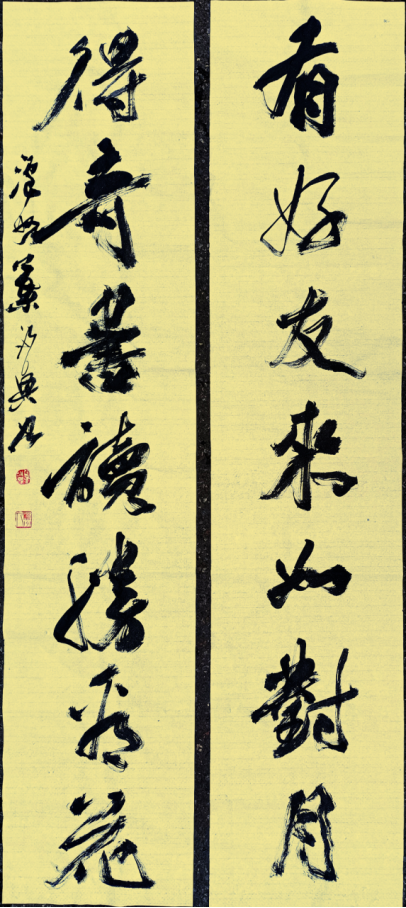 有好友来如對月
得奇書讀勝看花